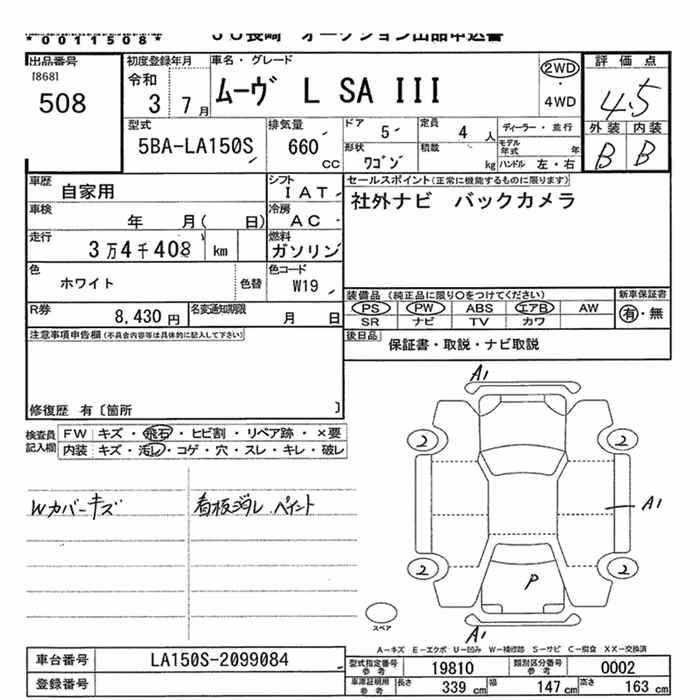 *0011508*
JU長崎 オークション出品申込書
出品番号
[868]
508
初度登録年月
令和
3 7月
車名・グレード
ムーヴ L SA III
2WD
・
4WD
評価点
4.5
外装 内装
B B
型式
5BA-LA150S
排気量
660 cc
ドア 5
定員 4 人
ディーラー・並行
形状 ワゴン
積載 kg
モデル年式 年
ハンドル 左・右
車歴 自家用
シフト IAT
車検 年 月( 日)
冷房 AC
走行 3万4千408 km
燃料 ガソリン
色 ホワイト
色替
色コード W19
R券 8,430円
名変通知期限 月 日
セールスポイント(正常に機能するものに限ります)
社外ナビ バックカメラ
装備品 (純正品に限り○をつけてください)
新車保証書
PS PW ABS エアB AW
SR ナビ TV カワ
有・無
後日品 保証書・取説・ナビ取説
注意事項申告欄(不具合内容等は具体的に記入して下さい)
修復歴 有〔箇所 〕
検査員記入欄
FW キズ・飛石・ヒビ割・リペア跡・×要
内装 キズ・汚し・コゲ・穴・スレ・キレ・破レ
Wカバーキズ
看板消し ペイント
A1
2 2
A1
2 2
P
スペア
A1
A-キズ E-エクボ U-凹み W-補修跡 S-サビ C-腐食 XX-交換済
車台番号 LA150S-2099084
登録番号
型式指定番号参考 19810
類別区分番号参考 0002
車庫証明用参考 長さ 339 cm 幅 147 cm 高さ 163 cm